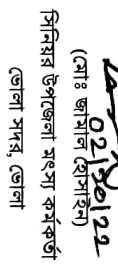 02/10/22
(মোঃ জামাল হোসাইন)
সিনিয়র উপজেলা মৎস্য কর্মকর্তা
ভোলা সদর, ভোলা